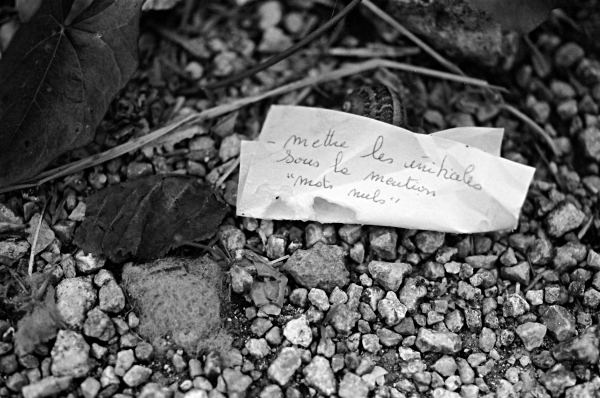 - mettre les initiales
sous la mention
"mots nuls"